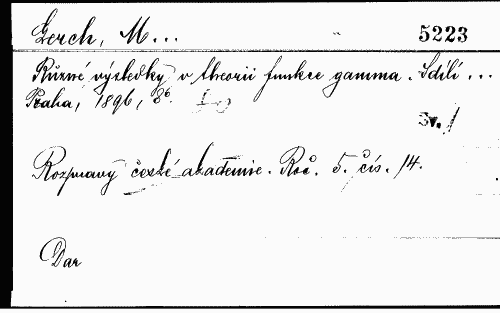 Lerch, M... 5223
Různé výsledky v theorii funkce gamma. Sdílí...
Praha, 1896, 8°.
Sv. 1
Rozpravy české akademie. Roč. 5. čís. 14.
Dar